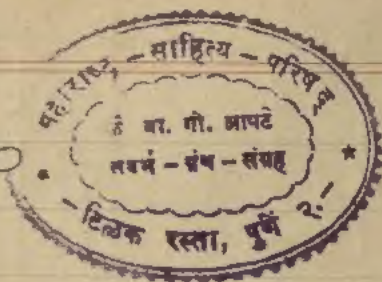 महाराष्ट्र – साहित्य – परिषद्
वा. गो. आपटे
संदर्भ – ग्रंथ – संग्रह
– टिळक रस्ता, पुणें २. –